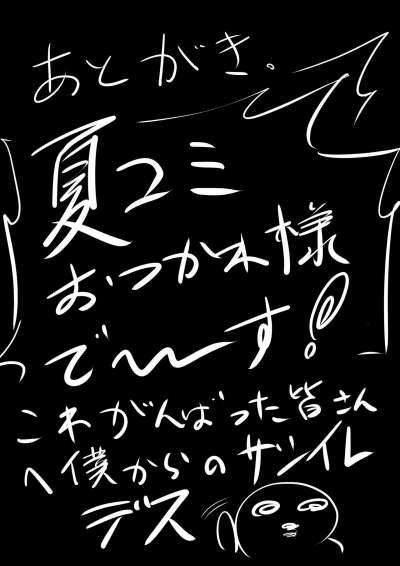 あとがき。
夏コミ
おつかれ様
で〜〜す!
これがんばった皆さん
へ僕からのサシイレ
デス